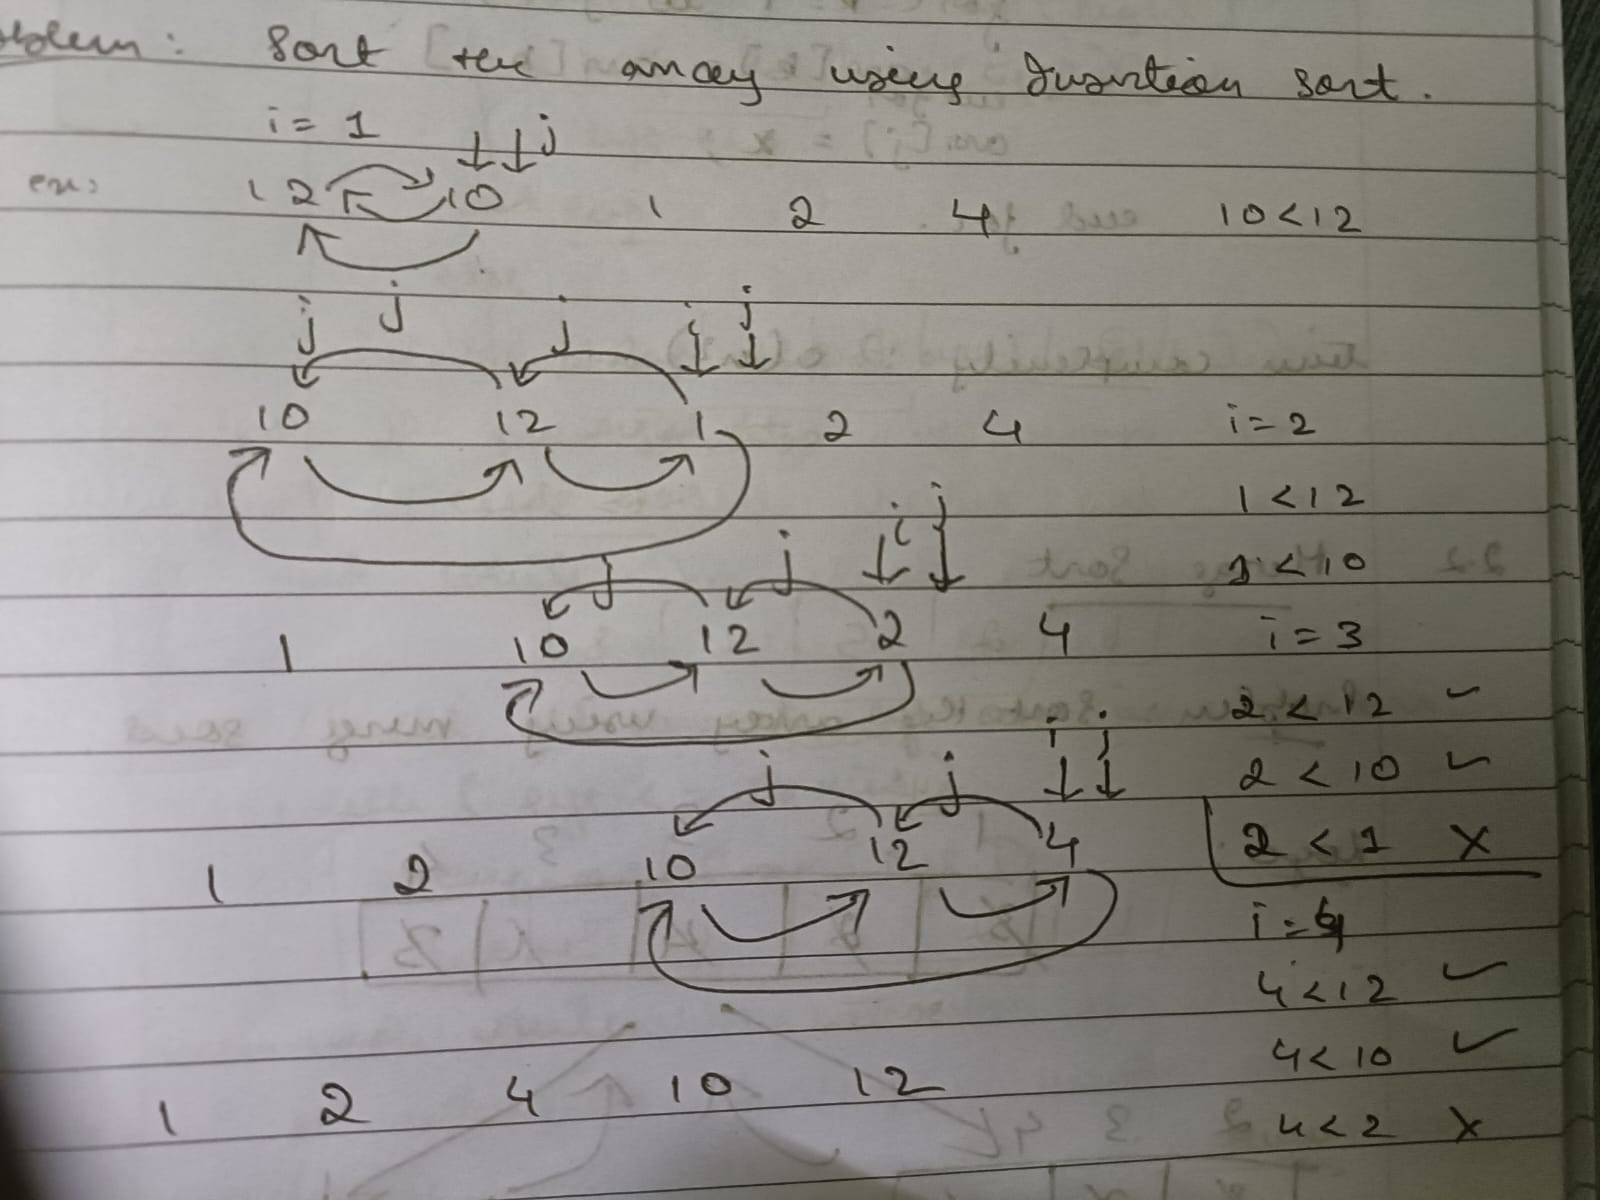 Problem: Sort the array using Insertion sort.
i = 1 j
ex: 12 10 1 2 4 10<12
j j j i j
10 12 1 2 4 i=2
1<12
j j i j
1<10
1 10 12 2 4 i=3
2<12 ✓
j j i j
2<10 ✓
1 2 10 12 4 2<1 X
i=4
4<12 ✓
4<10 ✓
1 2 4 10 12
4<2 X